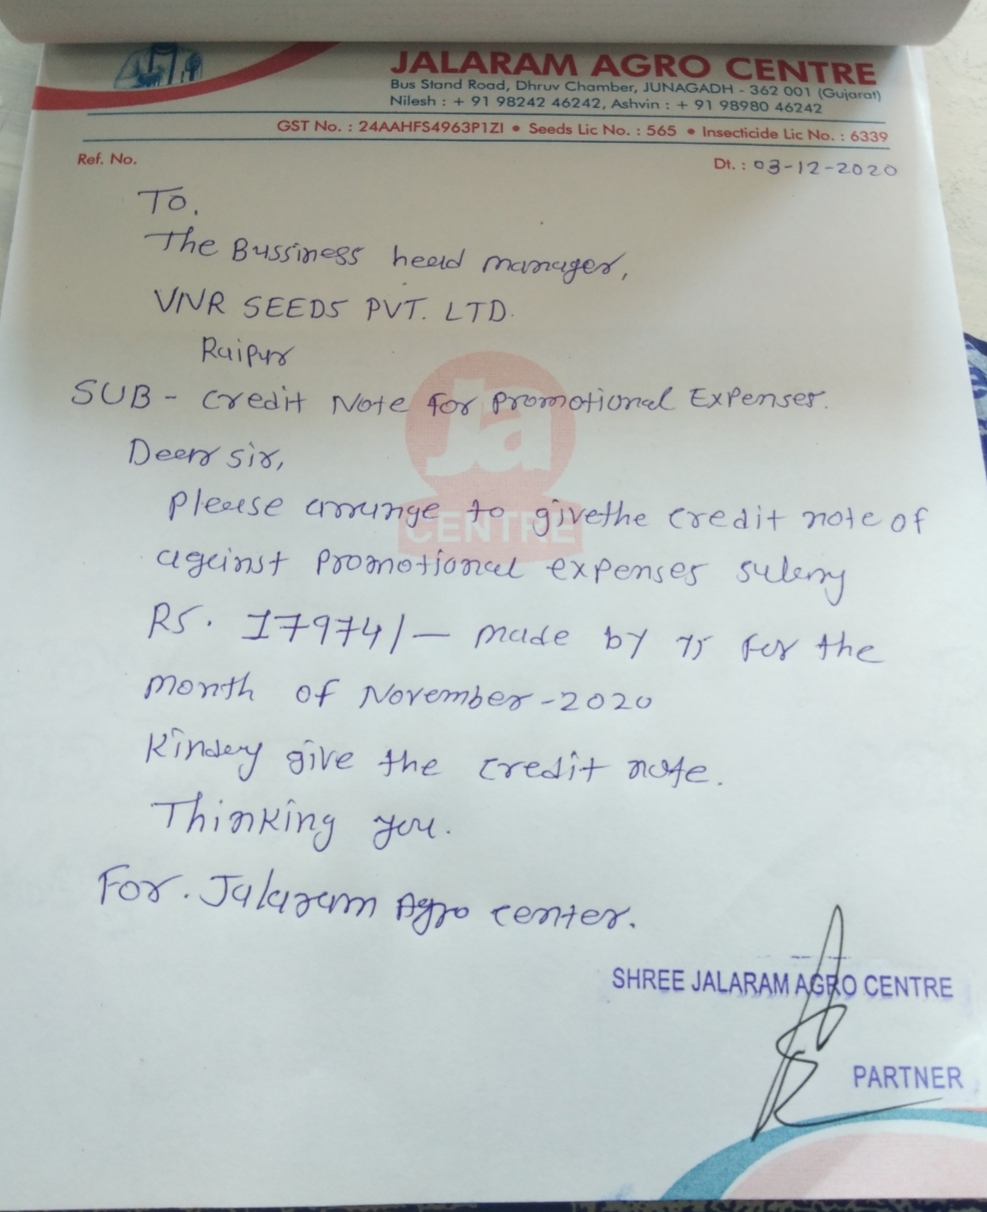 JALARAM AGRO CENTRE
Bus Stand Road, Dhruv Chamber, JUNAGADH - 362 001 (Gujarat)
Nilesh : + 91 98242 46242, Ashvin : + 91 98980 46242
GST No. : 24AAHFS4963P1ZI • Seeds Lic No. : 565 • Insecticide Lic No. : 6339
Ref. No.
Dt. : 03-12-2020
To,
The Bussiness head manager,
VNR SEEDS PVT. LTD.
Raipur
SUB - Credit Note for Promotional Expenses.
Dear sir,
Please arrunge to givethe credit note of
against promotional expenses salary
RS. 17974/- made by for the
month of November-2020
Kindly give the credit note.
Thinking you.
For. Jalaram Agro center.
ja
CENTRE
SHREE JALARAM AGRO CENTRE
PARTNER